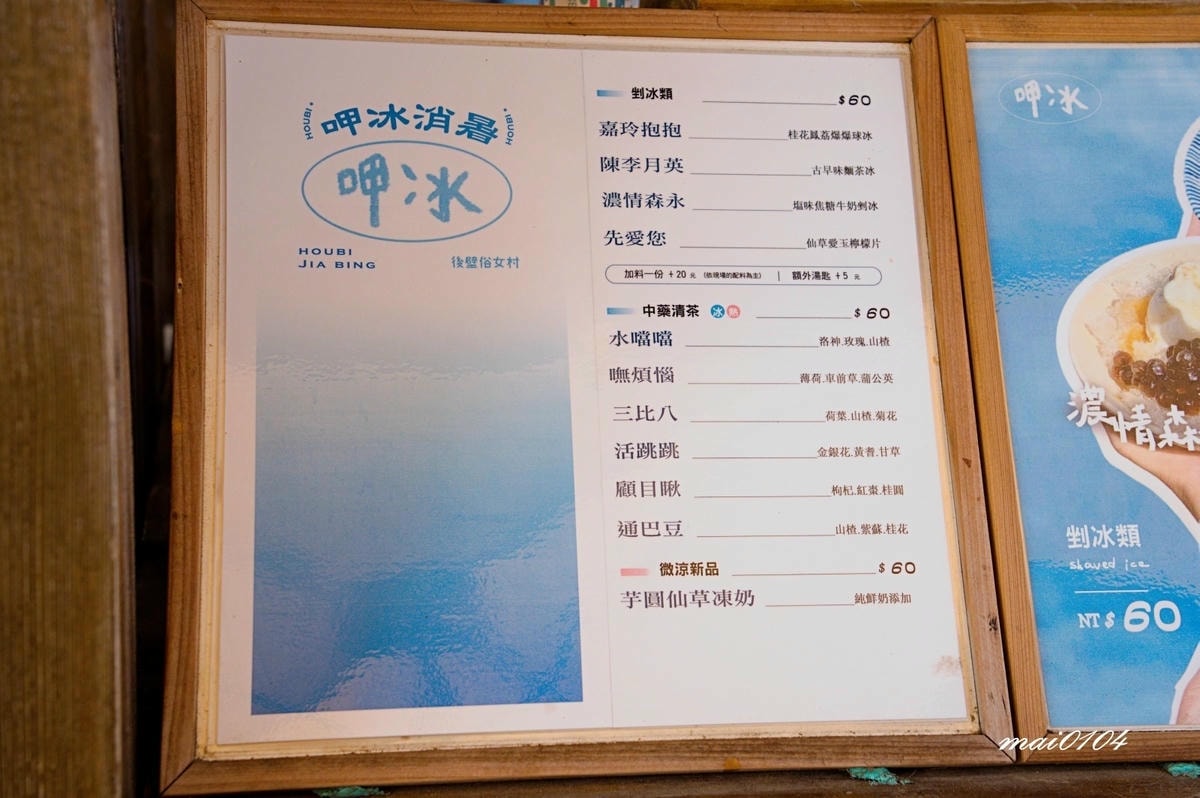 HOUBI 呷冰消暑 HOUBI
呷冰
HOUBI
JIA BING
後壁俗女村
剉冰類 $60
嘉玲抱抱 桂花鳳荔爆爆球冰
陳李月英 古早味麵茶冰
濃情森永 塩味焦糖牛奶剉冰
先愛您 仙草愛玉檸檬片
加料一份 +20 元 (依現場的配料為主) | 額外湯匙 +5 元
中藥清茶 冰 熱 $60
水噹噹 洛神.玫瑰.山楂
嘸煩惱 薄荷.車前草.蒲公英
三比八 荷葉.山楂.菊花
活跳跳 金銀花.黃耆.甘草
顧目瞅 枸杞.紅棗.桂圓
通巴豆 山楂.紫蘇.桂花
微涼新品 $60
芋圓仙草凍奶 純鮮奶添加
呷冰
濃情森
剉冰類
shaved ice
NT$60
mai0104